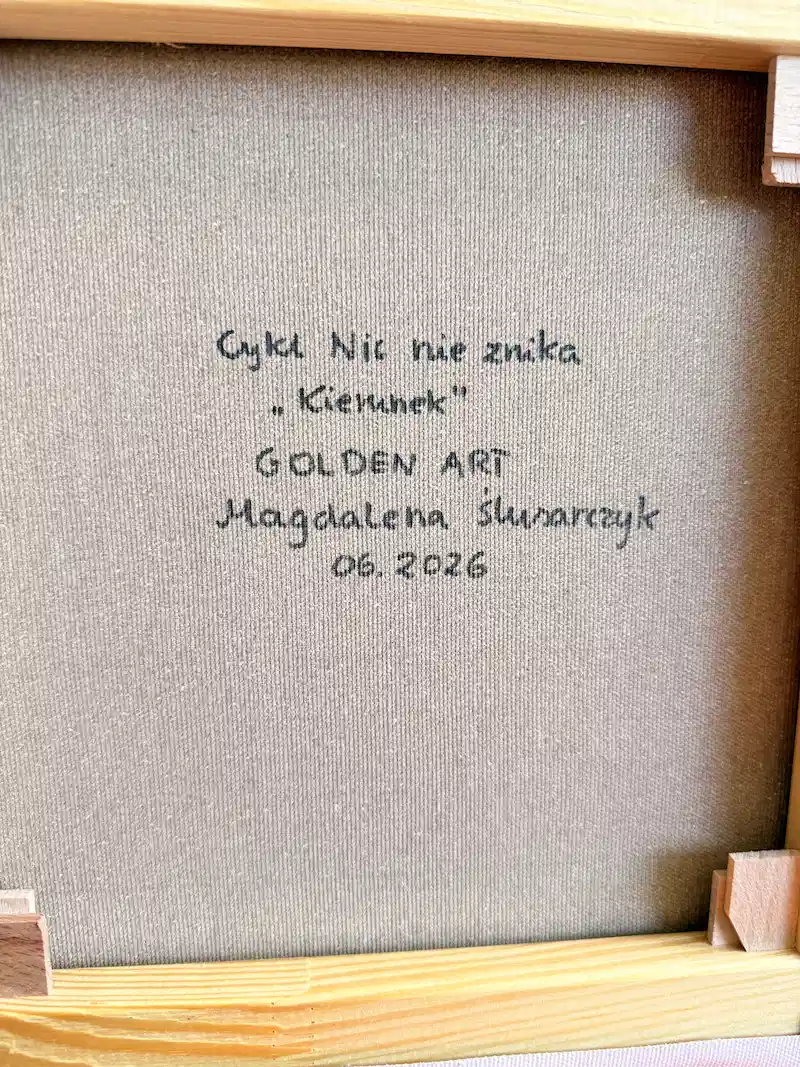 Cykl Nic nie znika
„Kierunek"
GOLDEN ART
Magdalena Ślusarczyk
06.2026